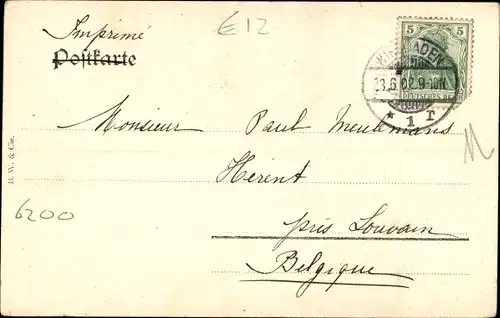 Imprimé
E12
Postkarte
5 5
DEUTSCHES REICH
WIESBADEN
23.6.02.9-10N.
* 1 I
Monsieur Paul Meulemans
Hérent
près Louvain
Belgique
B. W. & Cie.
6200